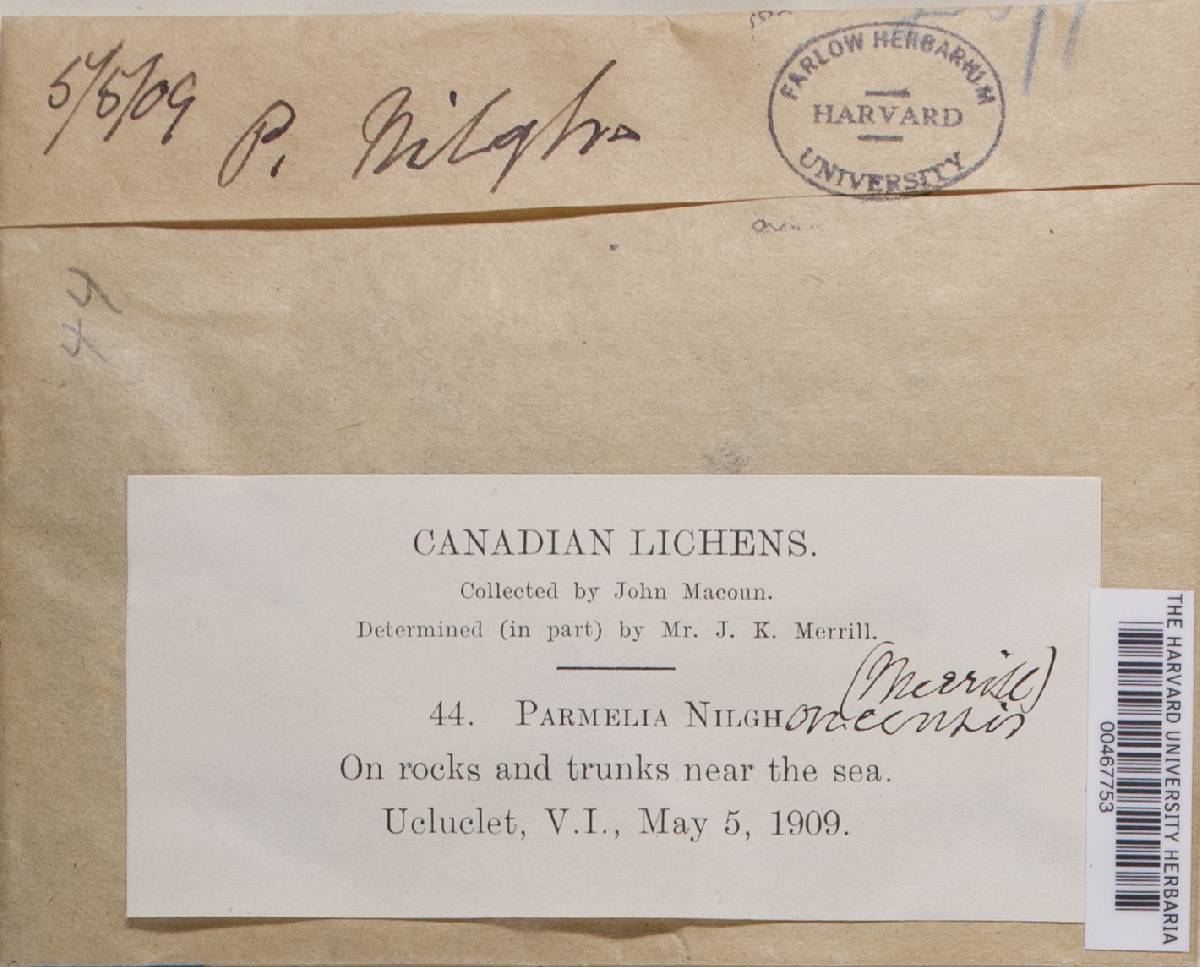 5/5/09 P. Nilgh
FARLOW HERBARIUM
HARVARD
UNIVERSITY
44
CANADIAN LICHENS.
Collected by John Macoun.
Determined (in part) by Mr. J. K. Merrill.
(Merrill)
44. PARMELIA NILGH
On rocks and trunks near the sea.
Ucluclet, V.I., May 5, 1909.
THE HARVARD UNIVERSITY HERBARIA
00467753